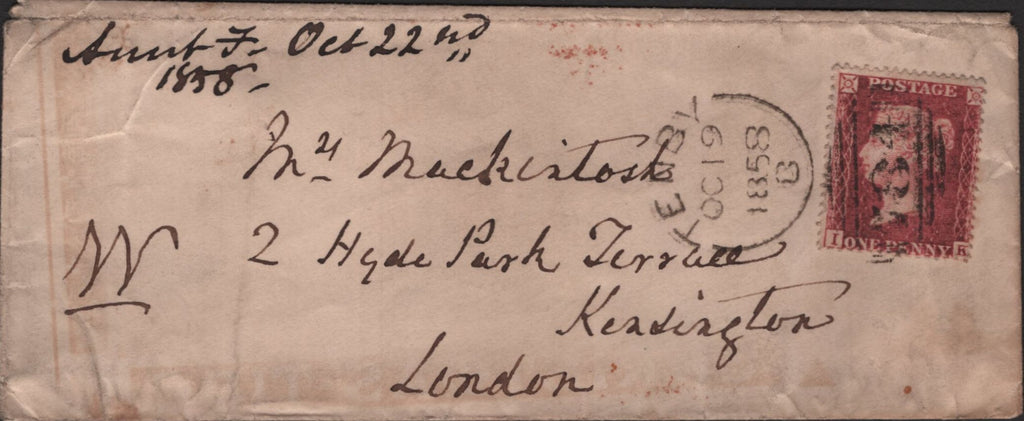 Aunt F. Oct 22nd
1858.
Mrs Mackintosh
W
2 Hyde Park Terrace
Kensington
London
TENBY
OC 19
1858
B
POSTAGE
ONE PENNY
I